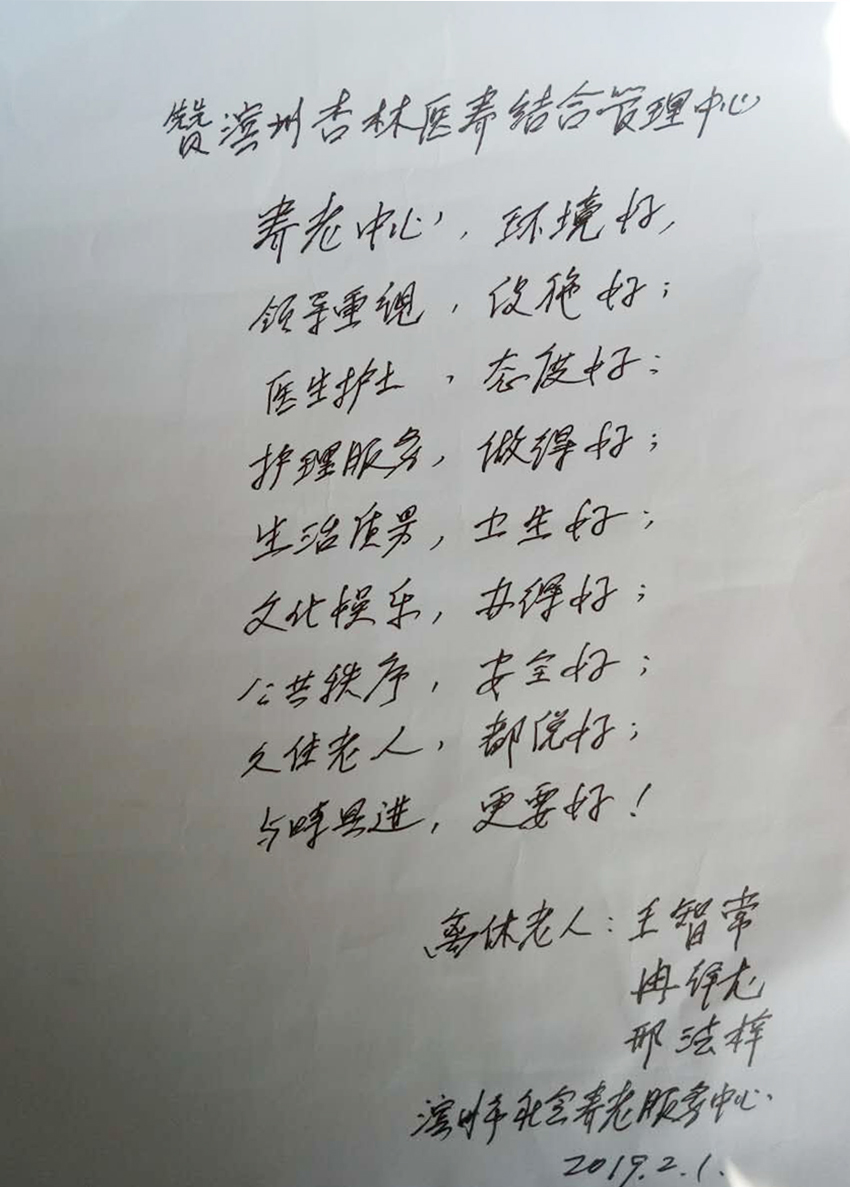 赞滨州杏林医养结合管理中心
养老中心，环境好，
领导重视，设施好；
医生护士，态度好；
护理服务，做得好；
生活质男，卫生好；
文化娱乐，办得好；
公共秩序，安全好；
久住老人，都说好；
与时具进，更要好！
离休老人：王智常
冉 志
邢法梓
滨州市社会养老服务中心
2019.2.1.